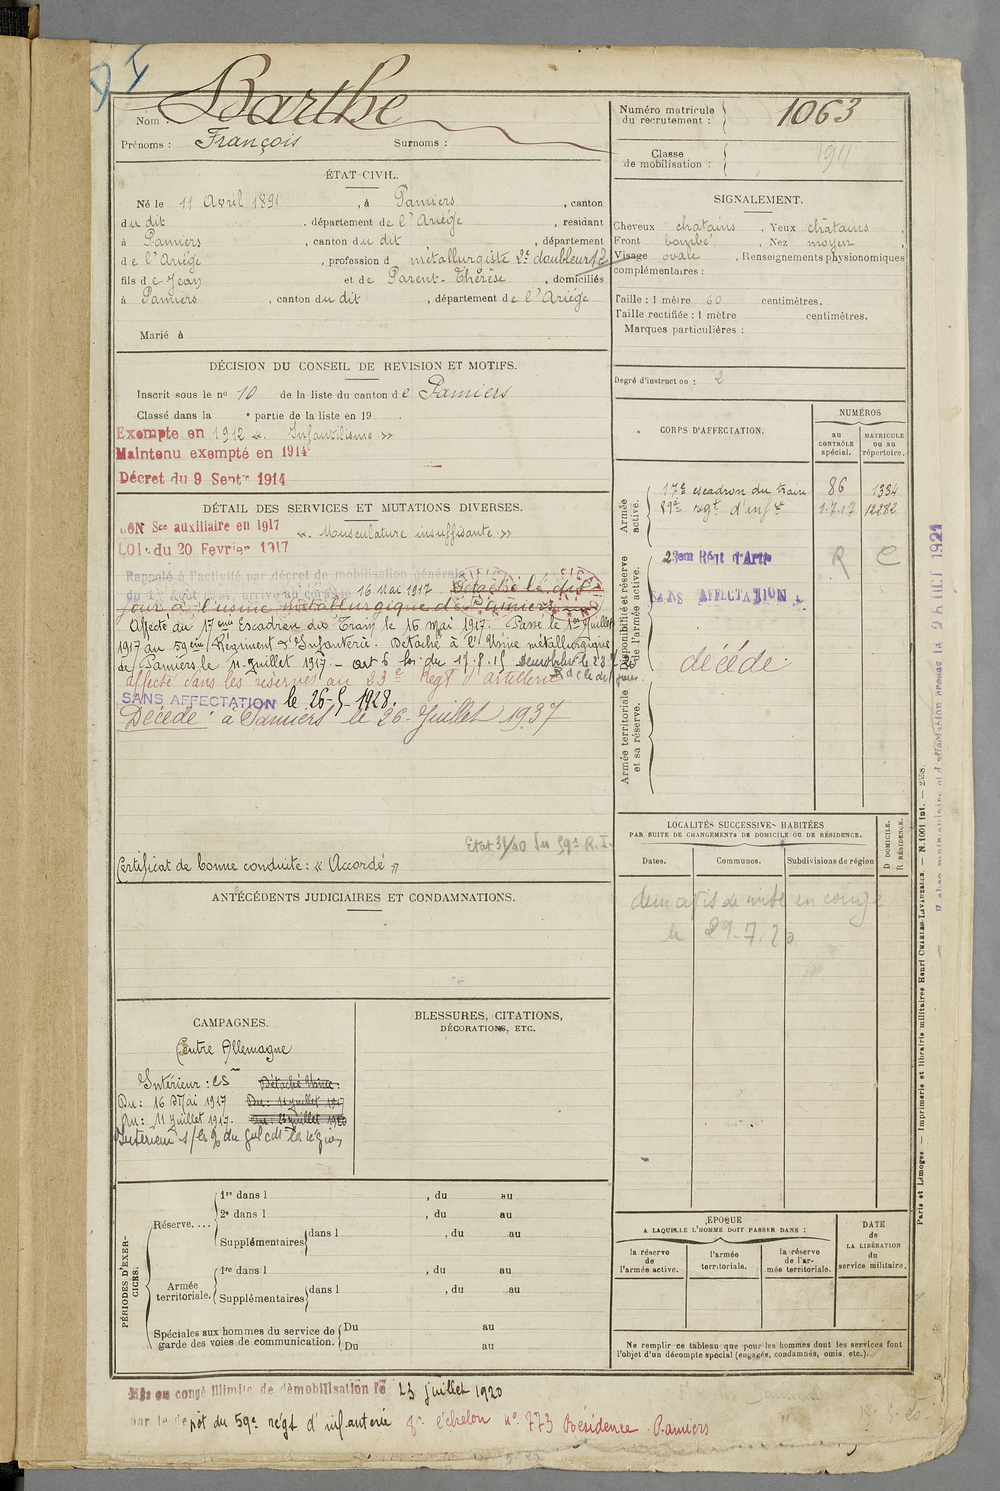 Barthe
Nom :
Prénoms : François Surnoms :
Numéro matricule du recrutement : 1063
Classe de mobilisation : 1911
ÉTAT CIVIL.
Né le 11 Avril 1891, à Pamiers, canton
du dit, département de l'Ariège, résidant
à Pamiers, canton du dit, département
de l'Ariège, profession d métallurgiste 2e doubleur
fils de Jean et de Parent-Thérèse, domiciliés
à Pamiers, canton du dit, département de l'Ariège
Marié à
SIGNALEMENT.
Cheveux chatains, Yeux châtains,
Front bombé, Nez moyen
Visage ovale, Renseignements physionomiques
complémentaires :
Taille : 1 mètre 60 centimètres.
Taille rectifiée : 1 mètre centimètres.
Marques particulières :
Degré d'instruction : 2
DÉCISION DU CONSEIL DE REVISION ET MOTIFS.
Inscrit sous le no 10 de la liste du canton de Pamiers
Classé dans la e partie de la liste en 19 .
Exempté en 1912 «. Infantilisme »
Maintenu exempté en 1914
Décret du 9 Septre 1914
DÉTAIL DES SERVICES ET MUTATIONS DIVERSES.
BON Sce auxiliaire en 1917
LOI du 20 Fevrier 1917 «. Musculature insuffisante »
Rappelé à l'activité par décret de mobilisation générale
du 1er Août 1914, arrivé au corps le 16 Mai 1917 Détaché le dit
jour à l'usine métallurgique de Pamiers
Affecté au 17eme Escadron du Train le 16 mai 1917. Passé le 1er Juillet
1917 au 59eme Régiment d'Infanterie. Détaché à l'Usine métallurgique
de Pamiers le 11 Juillet 1917. - art 6 loi du 17.8.15
affecté dans les réserves au 23e Regt d'artillerie
SANS AFFECTATION le 26-5-1928.
Décédé à Pamiers le 26 Juillet 1937
Etat 39/40 du 59e R.I.
Certificat de bonne conduite : « Accordé »
CORPS D'AFFECTATION.
NUMÉROS
au CONTRÔLE spécial.
MATRICULE ou au répertoire.
Armée active.
17e escadron du train 86 1334
59e regt d'infie 1-7-17 12282
Disponibilité et réserve de l'armée active.
23em Régt d'Artie R C
SANS AFFECTATION
décédé
Armée territoriale et sa réserve.
LOCALITÉS SUCCESSIVES HABITÉES
PAR SUITE DE CHANGEMENTS DE DOMICILE OU DE RÉSIDENCE.
D DOMICILE.
R RÉSIDENCE.
Dates. Communes. Subdivisions de région
dem avis de mise en congé
le 29.7.20
ANTÉCÉDENTS JUDICIAIRES ET CONDAMNATIONS.
CAMPAGNES.
Contre Allemagne
Intérieur : CS Détaché Usine :
Du : 16 Mai 1917 Du : 11 Juillet 1917
Au : 11 Juillet 1917. Au : 23 Juillet 1920
BLESSURES, CITATIONS,
DÉCORATIONS, ETC.
PÉRIODES D'EXERCICES.
Réserve....
1re dans l , du au
2e dans l , du au
Supplémentaires dans l , du au
Armée territoriale.
1re dans l , du au
Supplémentaires dans l , du au
Spéciales aux hommes du service de garde des voies de communication.
Du au
Du au
ÉPOQUE
A LAQUELLE L'HOMME DOIT PASSER DANS :
la réserve de l'armée active.
l'armée territoriale.
la réserve de l'armée territoriale.
DATE de LA LIBÉRATION du service militaire.
Ne remplir ce tableau que pour les hommes dont les services font
l'objet d'un décompte spécial (engagés, condamnés, omis, etc.).
Mis en congé illimité de démobilisation le 23 juillet 1920
par le dépôt du 59e regt d'infanterie 8e échelon no 773 Résidence Pamiers
Paris et Limoges. — Imprimerie et librairie militaires Henri CHARLES-LAVAUZELLE. — N. 1001 Int. — 2558.